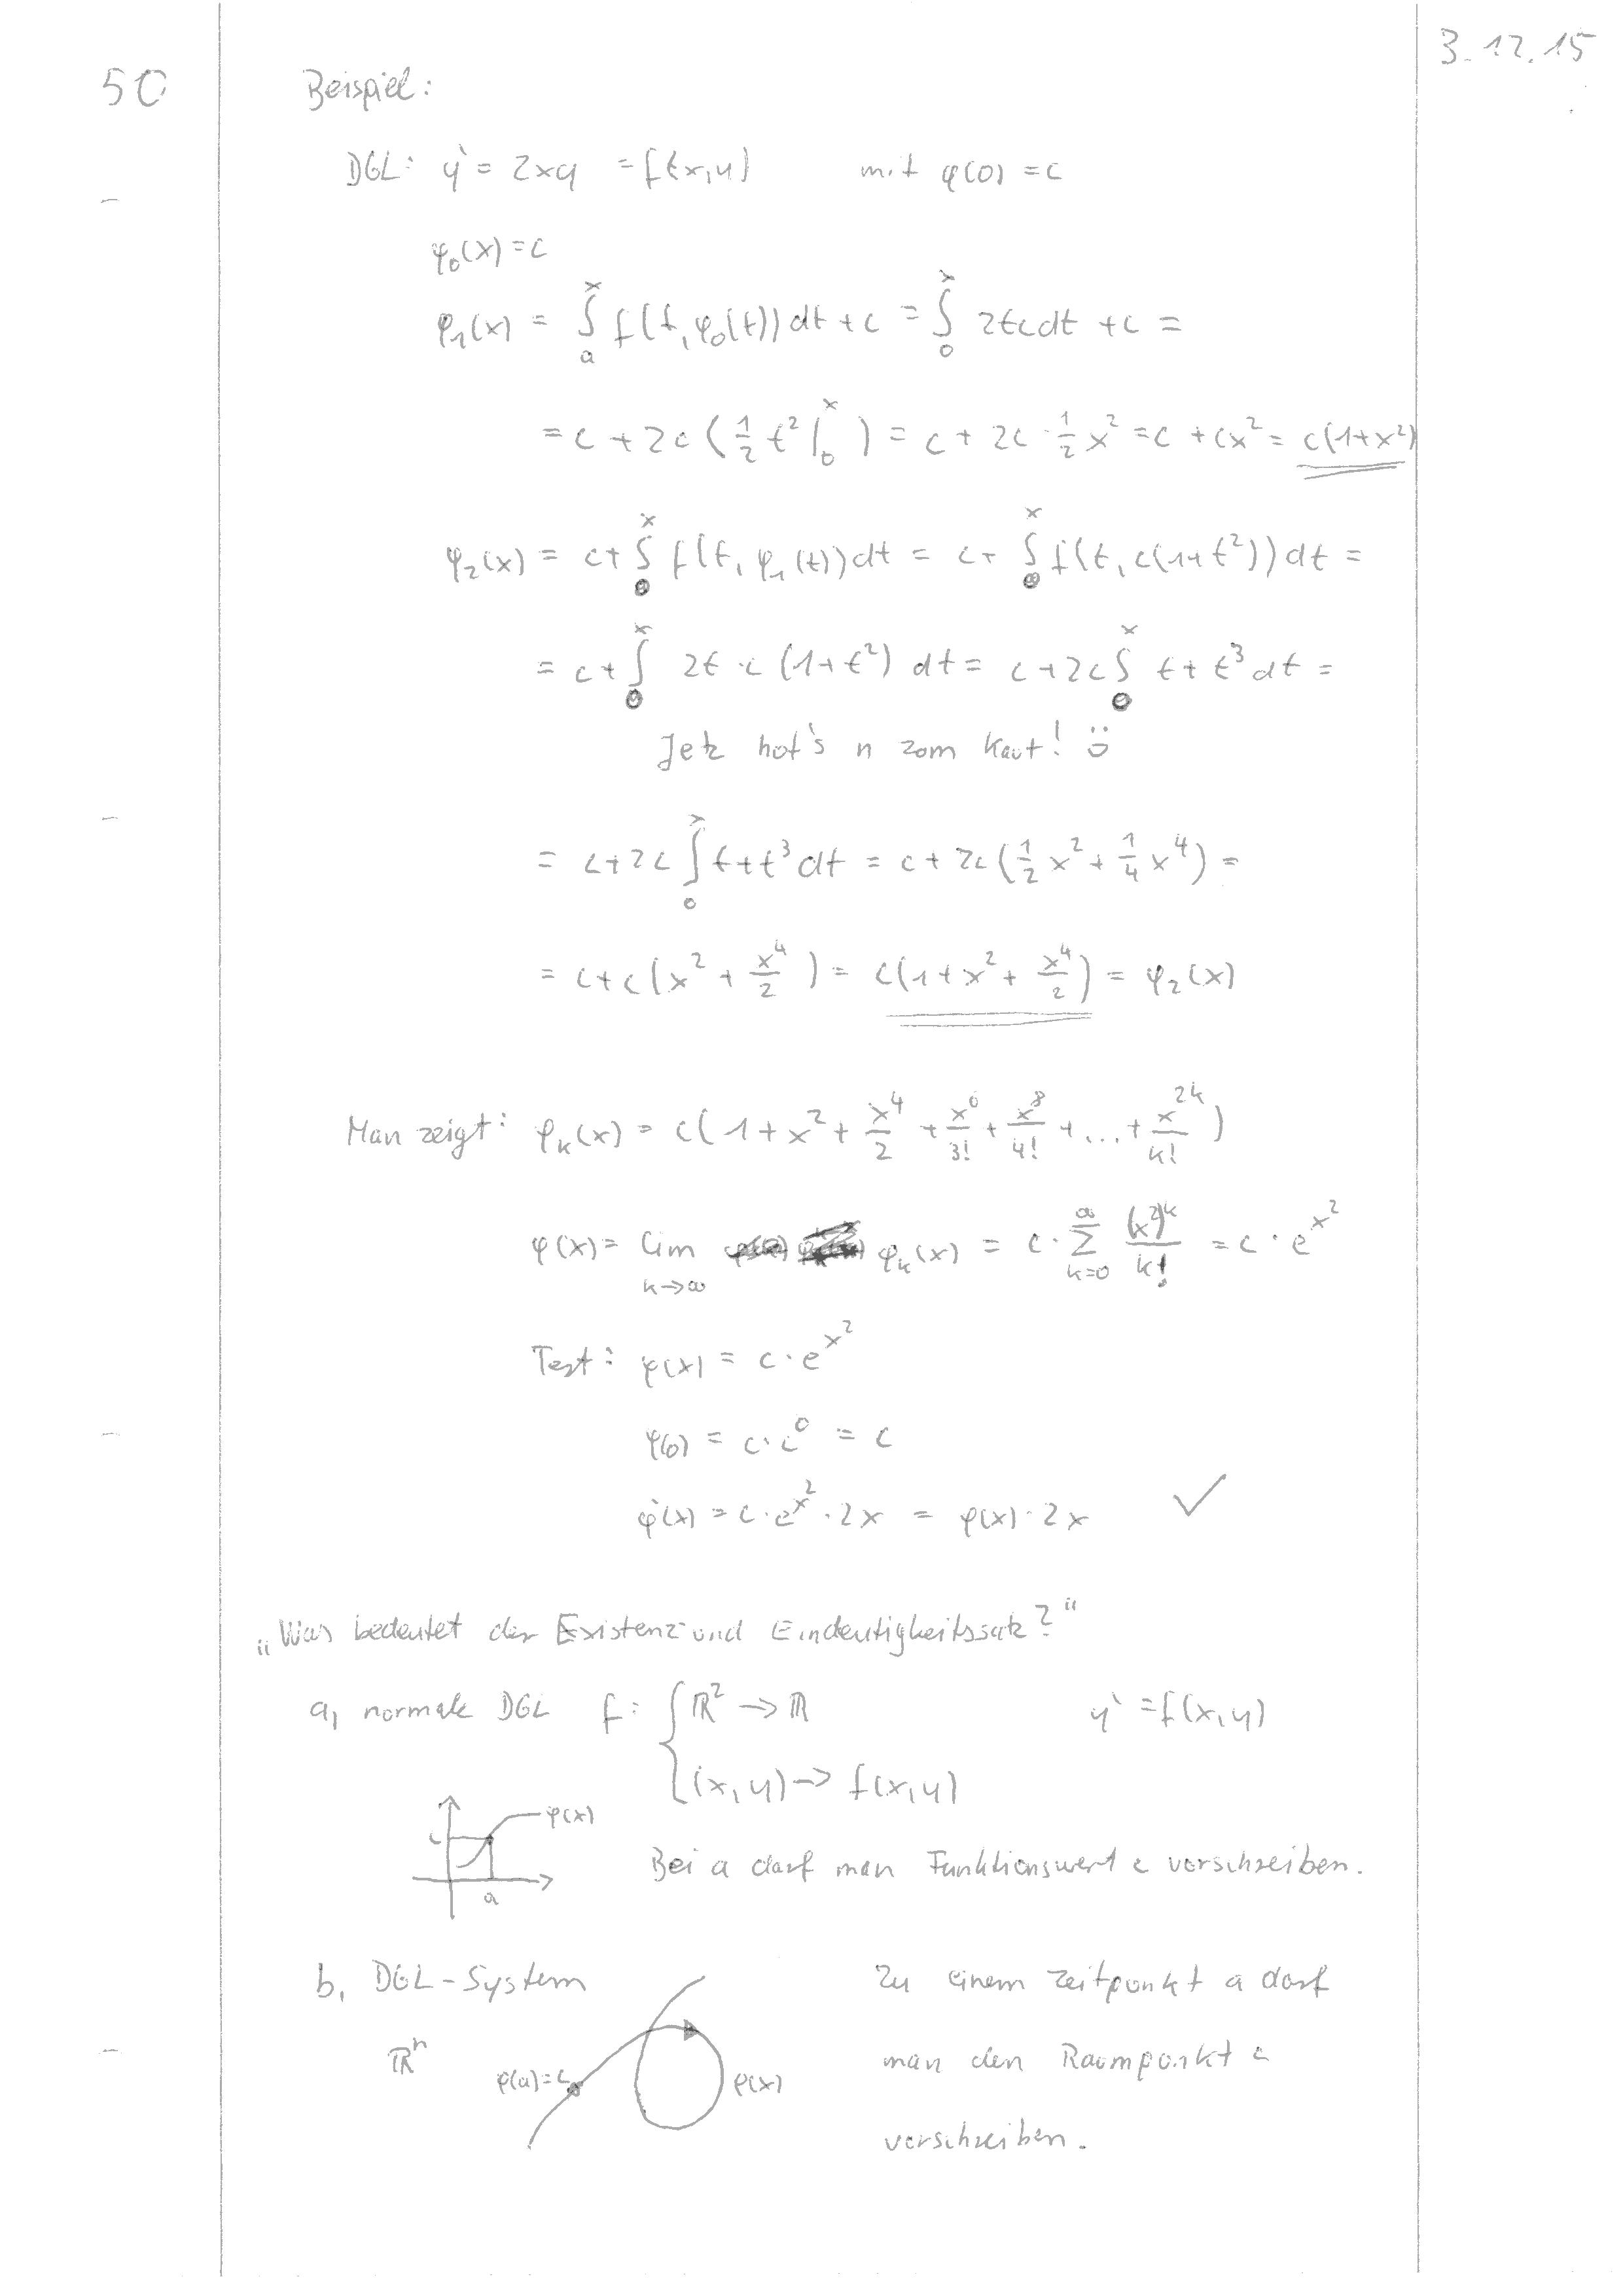 3.12.15
50
Beispiel:
DGL: y' = 2xy = f(x,y) mit φ(0) = c
φ₀(x) = c
φ₁(x) = ∫ₐˣ f(t, φ₀(t)) dt + c = ∫₀ˣ 2tc dt + c =
= c + 2c (½ t² |₀ˣ) = c + 2c · ½ x² = c + cx² = c(1+x²)
φ₂(x) = c + ∫₀ˣ f(t, φ₁(t)) dt = c + ∫₀ˣ f(t, c(1+t²)) dt =
= c + ∫₀ˣ 2t · c (1+t²) dt = c + 2c ∫₀ˣ t + t³ dt =
Jetz hot's n zom Kaut! ☺
= c + 2c ∫₀ˣ t + t³ dt = c + 2c (½ x² + ¼ x⁴) =
= c + c (x² + x⁴/2) = c(1 + x² + x⁴/2) = φ₂(x)
Man zeigt: φₖ(x) = c(1 + x² + x⁴/2 + x⁶/3! + x⁸/4! + ... + x²ᵏ/k!)
φ(x) = lim k→∞ φₖ(x) = c · ∑ₖ₌₀^∞ (x²)ᵏ/k! = c · e^x²
Test: φ(x) = c · e^x²
φ(0) = c · e⁰ = c
φ'(x) = c · e^x² · 2x = φ(x) · 2x ✓
„Was bedeutet der Existenz- und Eindeutigkeitssatz?"
a, normale DGL f: { ℝ² → ℝ y' = f(x,y)
(x,y) → f(x,y)
φ(x)
c
Bei a darf man Funktionswert c vorschreiben.
a
b, DGL-System Zu einem Zeitpunkt a darf
ℝⁿ man den Raumpunkt c
φ(a) = c φ(x)
vorschreiben.